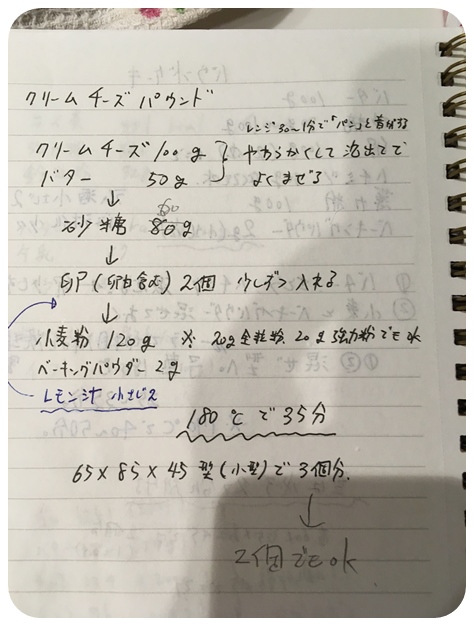 クリーム チーズ パウンド
レンジ 30〜1分で「パン」と音がする
クリーム チーズ 100g
バター 50g
やわらかくして泡立てで
よくまぜる
↓
砂糖 80g
60
↓
卵 2個 少しずつ 入れる
小麦粉 120g ※ 20g全粒粉、20g強力粉でもok
ベーキングパウダー 2g
レモン汁 小さじ2
180℃で35分
65×85×45型(小型)で3個分.
↓
2個でもok